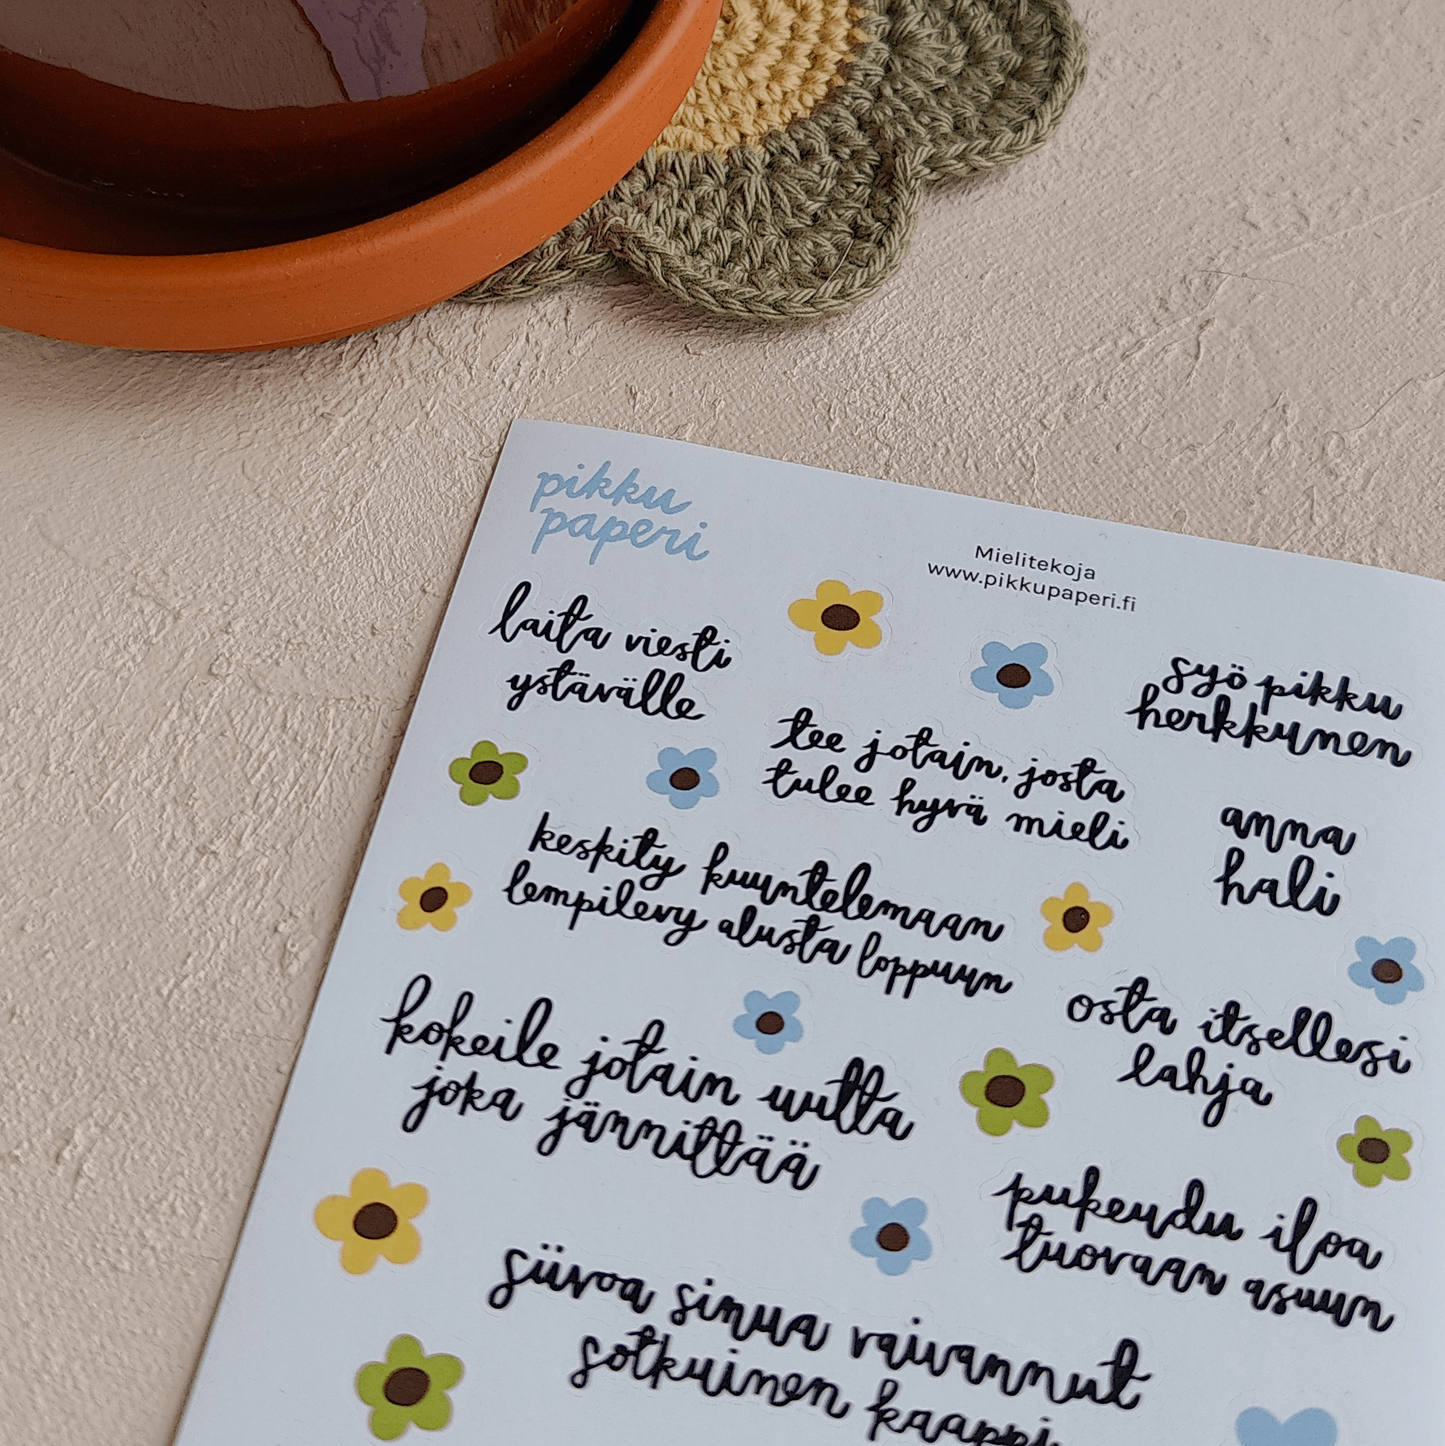 pikku
paperi
Mielitekoja
www.pikkupaperi.fi
laita viesti
ystävälle
syö pikku
herkkunen
tee jotain, josta
tulee hyvä mieli
anna
hali
keskity kuuntelemaan
lempilevy alusta loppuun
osta itsellesi
lahja
kokeile jotain uutta
joka jännittää
pukeudu iloa
tuovaan asuun
siivoa sinua vaivannut
sotkuinen kaappi